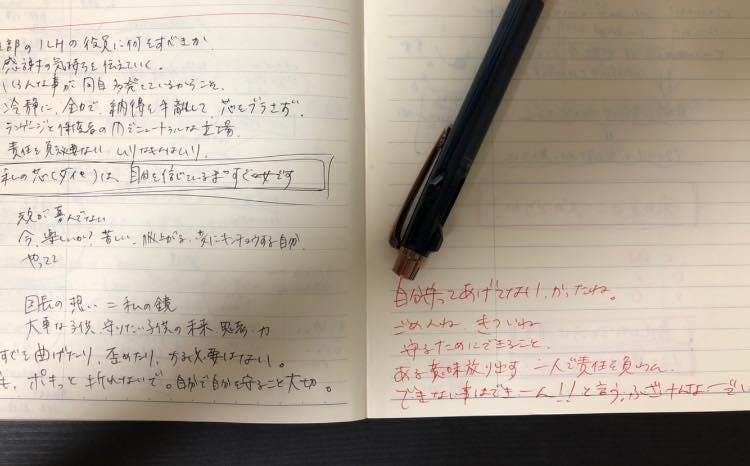 部のILHの役員に何をすべきか
感謝の気持ちを伝えていく。
いろんな事が同自多発しているからこそ、
冷静に、全力で、納得を手離して、芯をブラさず、
ランゲージと保護者の間でニュートラルな立場、
責任を負う必要ない ムリなもんはムリ、
私の芯(ダイヤ)は、自由を信じているまっすぐ です
魂が喜んでない
今、楽しいか?苦しい、腹上がる、変にキンチョウする自分、
やってて
園長の想い = 私の鏡
大事な子供 守りたい子供の未来 思考 力
すぐを曲げたり、歪めたり、する必要はない。
ポキっと折れないで。自分で自分を守ること大切。
自分守ってあげてない、かったね。
ごめんね、きついね
守るためにできること、
ある意味放り出す 一人で責任を負わん
できない事はできーん!!と言う。ふざけんなーでい